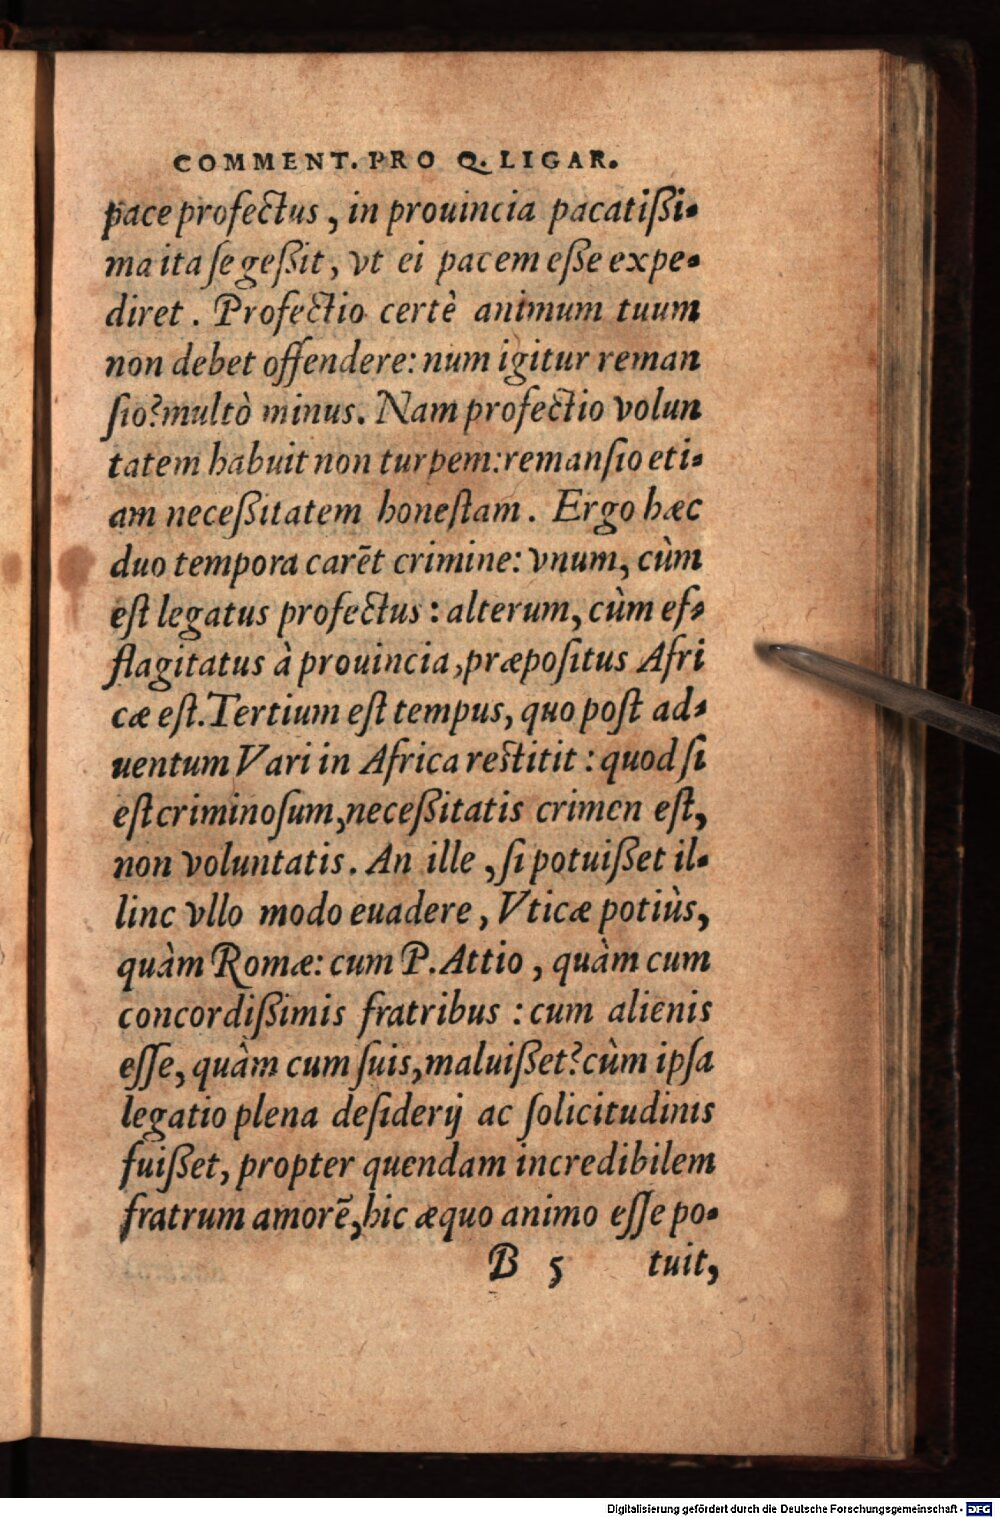 COMMENT. PRO Q. LIGAR.
pace profectus, in prouincia pacatißi-
ma ita ſe geßit, vt ei pacem eſſe expe-
diret. Profectio certè animum tuum
non debet offendere: num igitur reman
ſio? multò minus. Nam profectio volun
tatem habuit non turpem: remanſio eti-
am neceßitatem honeſtam. Ergo hæc
duo tempora carēt crimine: vnum, cùm
eſt legatus profectus: alterum, cùm ef-
flagitatus à prouincia, præpoſitus Afri
cæ eſt. Tertium eſt tempus, quo poſt ad-
uentum Vari in Africa reſtitit: quod ſi
eſt criminoſum, neceßitatis crimen eſt,
non voluntatis. An ille, ſi potuißet il-
linc vllo modo euadere, Vticæ potiùs,
quàm Romæ: cum P. Attio, quàm cum
concordißimis fratribus: cum alienis
eſſe, quàm cum ſuis, maluißet? cùm ipſa
legatio plena deſiderij ac ſolicitudinis
fuißet, propter quendam incredibilem
fratrum amorē, hic æquo animo eſſe po-
B 5 tuit,
Digitalisierung gefördert durch die Deutsche Forschungsgemeinschaft - DFG